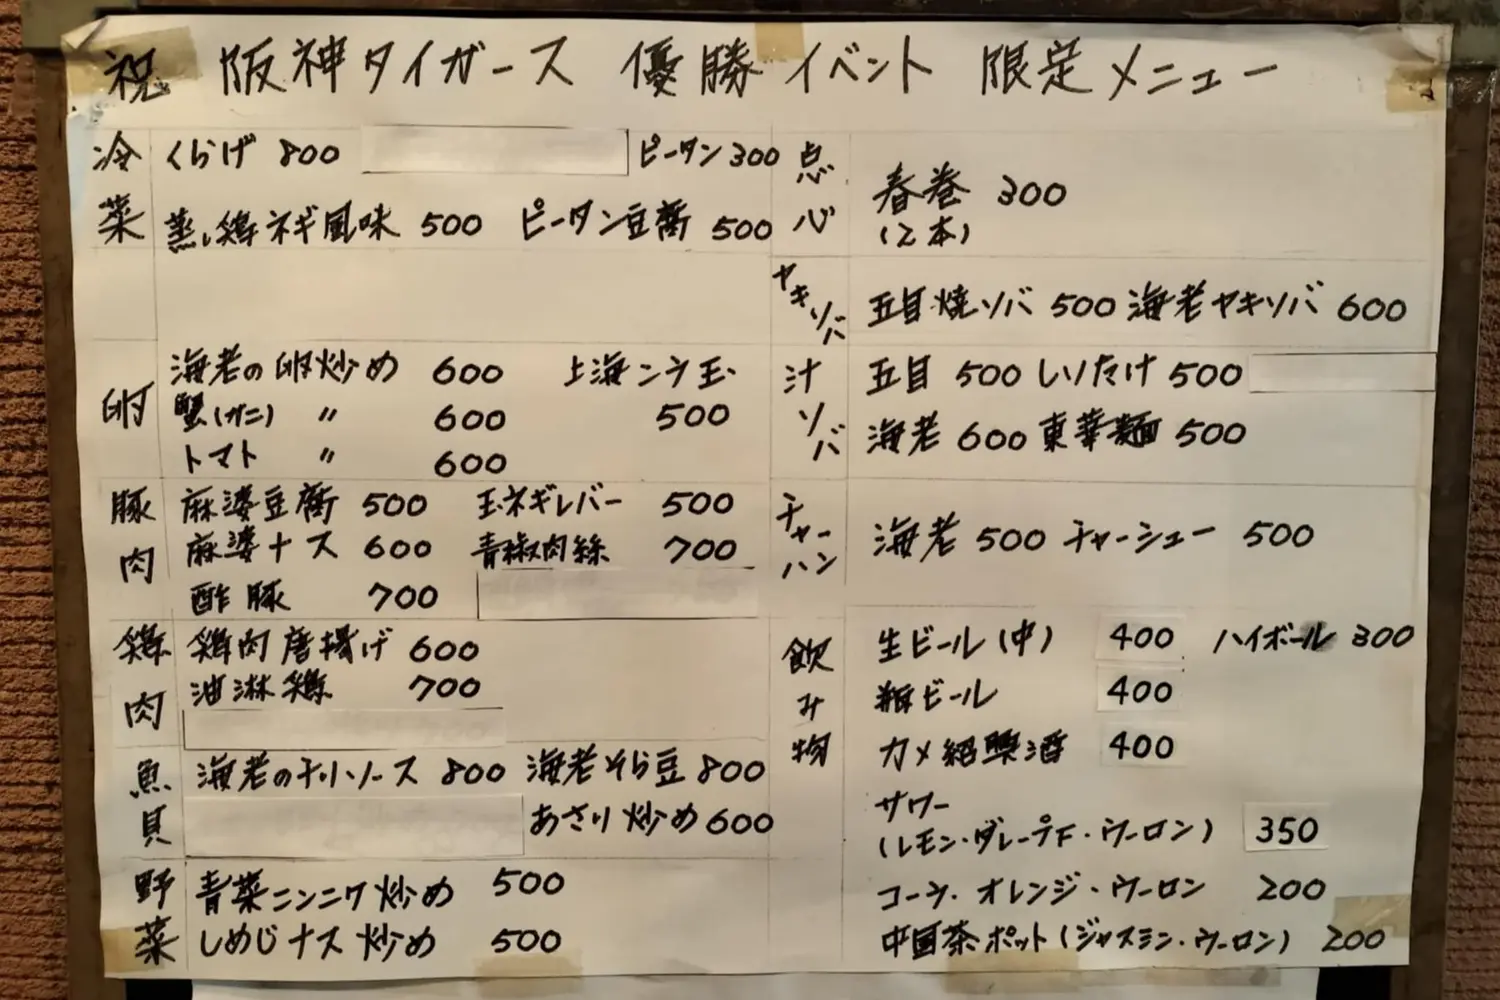 祝 阪神タイガース 優勝 イベント 限定 メニュー
冷菜
くらげ 800 ピータン 300
蒸し鶏ネギ風味 500 ピータン豆腐 500
卵
海老の卵炒め 600 上海ニラ玉
蟹(カニ) 〃 600 500
トマト 〃 600
豚肉
麻婆豆腐 500 玉ネギレバー 500
麻婆ナス 600 青椒肉絲 700
酢豚 700
鶏肉
鶏肉唐揚げ 600
油淋鶏 700
魚貝
海老のチリソース 800 海老そら豆 800
あさり炒め 600
野菜
青菜ニンニク炒め 500
しめじナス炒め 500
点心
春巻 300
(2本)
ヤキソバ
五目焼ソバ 500 海老ヤキソバ 600
汁ソバ
五目 500 しいたけ 500
海老 600 東華麺 500
チャーハン
海老 500 チャーシュー 500
飲み物
生ビール(中) 400 ハイボール 300
瓶ビール 400
カメ紹興酒 400
サワー
(レモン・グレープF・ウーロン) 350
コーラ・オレンジ・ウーロン 200
中国茶ポット(ジャスミン・ウーロン) 200